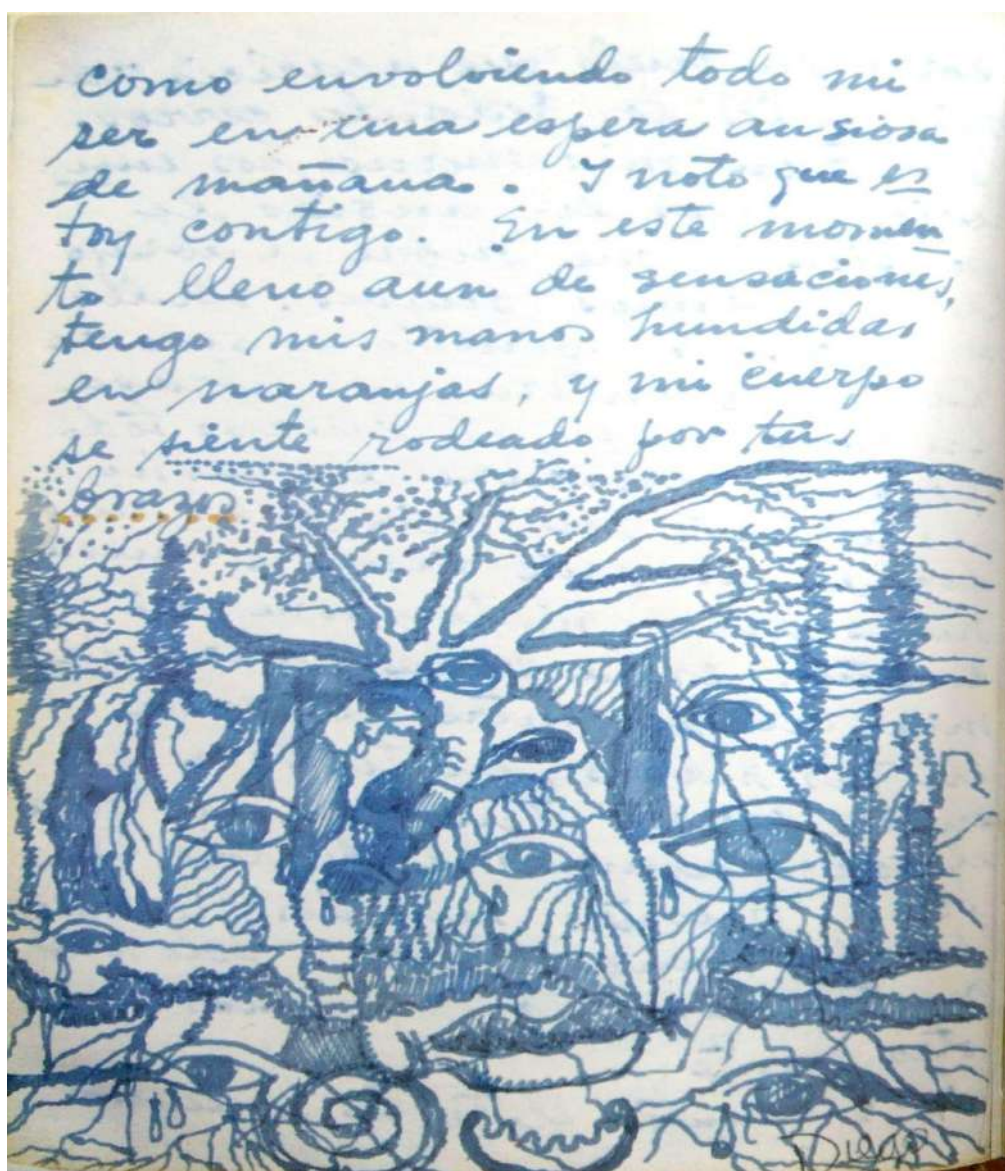 como envolviendo todo mi
ser en una espera ansiosa
de mañana. I noto que es
toy contigo. En este momen
to lleno aun de sensaciones,
tengo mis manos hundidas
en naranjas, y mi cuerpo
se siente rodeado por tus
brazos
DIEGO